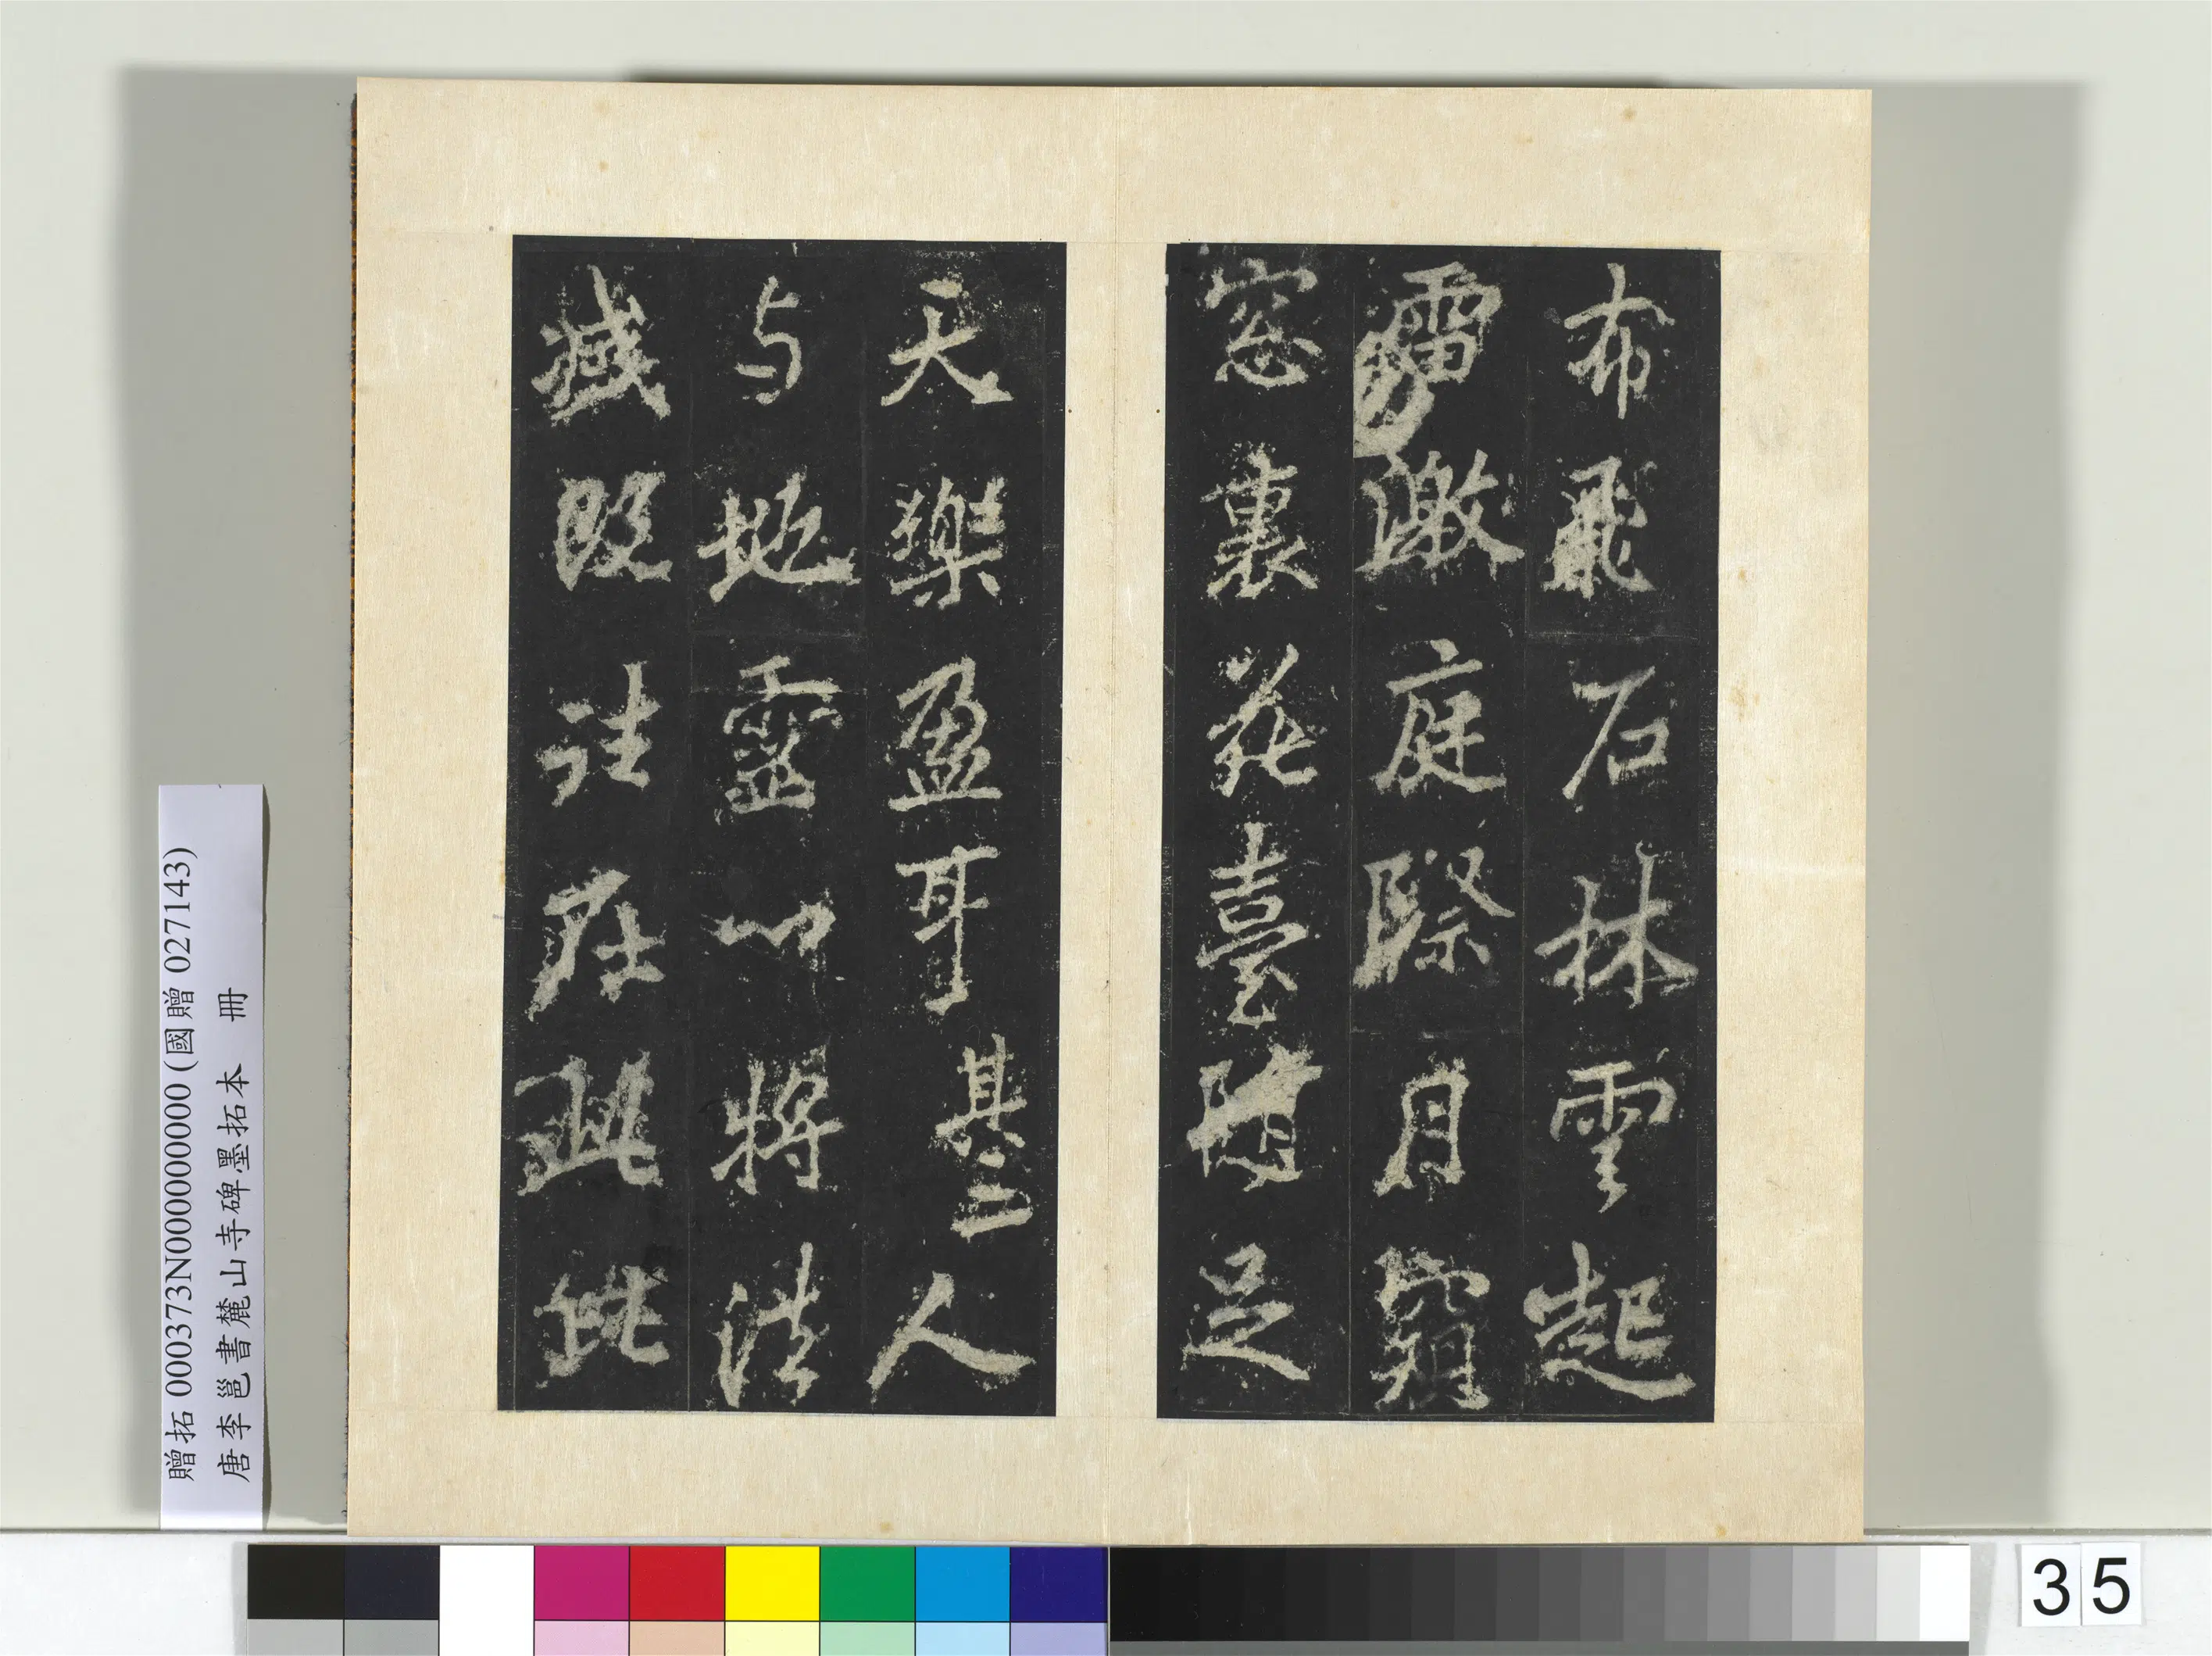 布飛石林雲起
雷激庭際月窺
窓裏花臺隨足
天樂盈耳其二人
与地靈以將法
滅既法在
贈拓 000373N000000000 (國贈 027143)
唐李邕書麓山寺碑墨拓本 冊
35